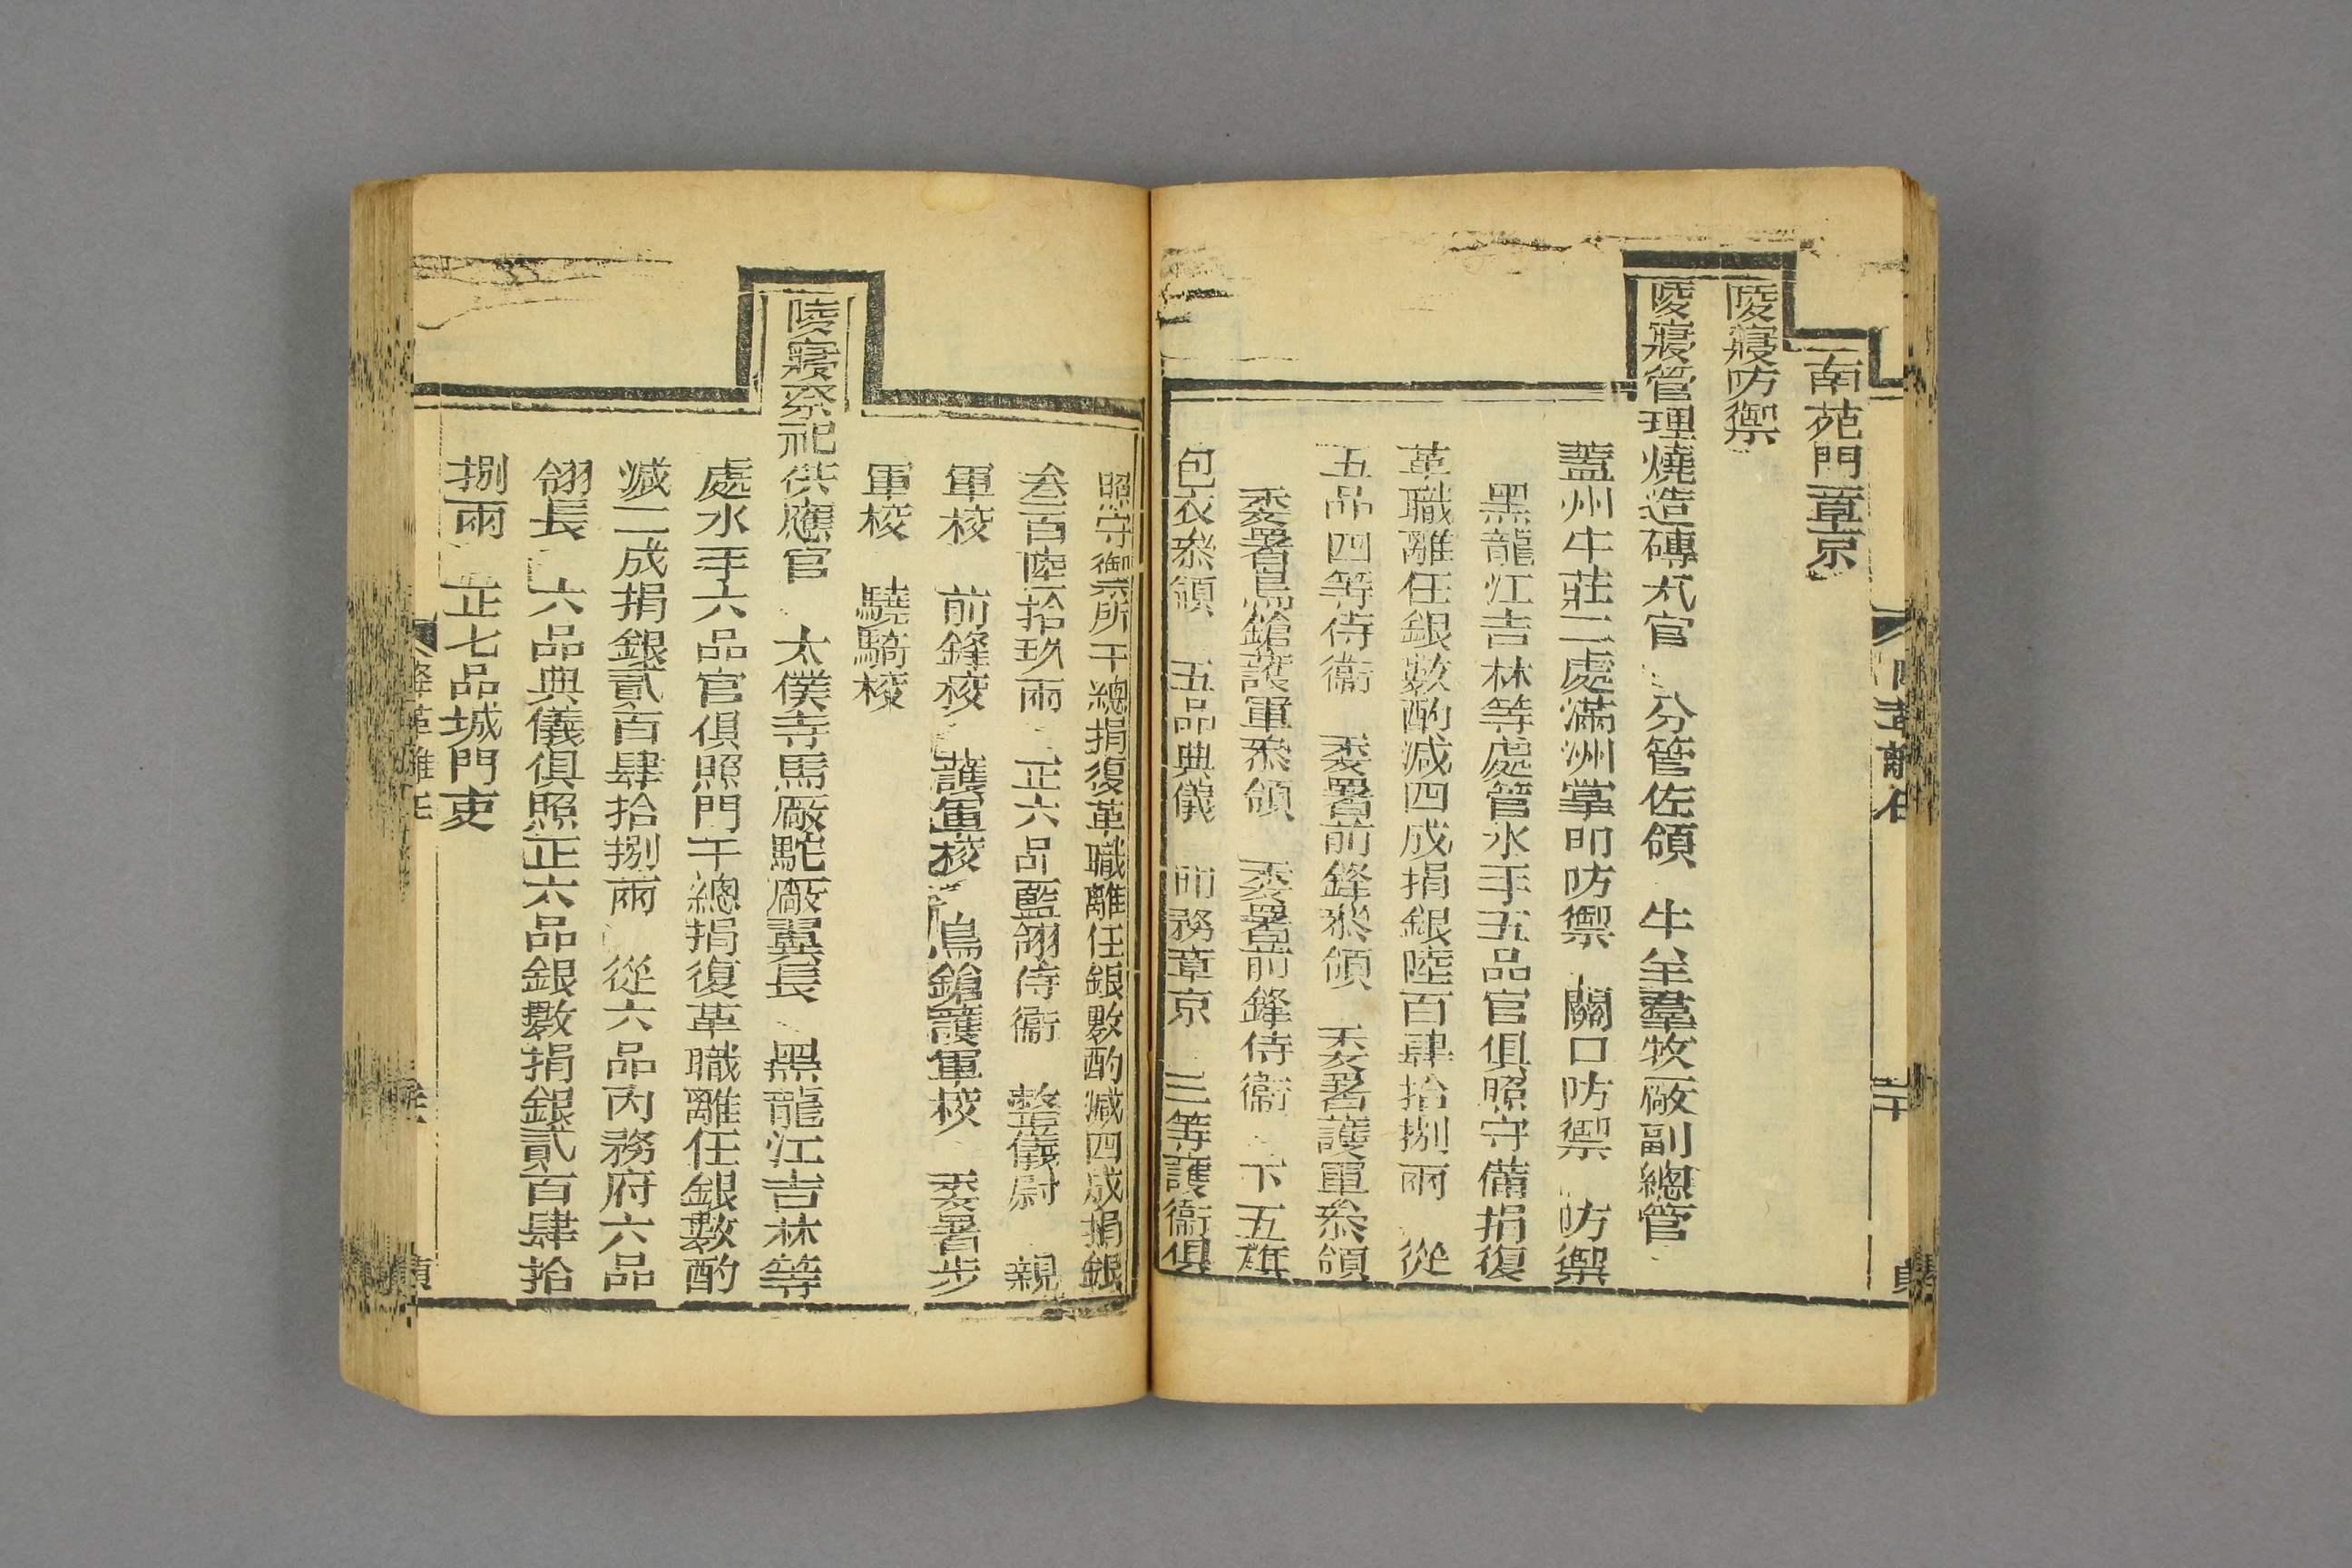 南苑門章京
陵寢防禦
陵寢管理燒造磚瓦官 分管佐領 牛羊羣牧廠副總管
蓋州牛莊二處滿洲掌印防禦 關口防禦 防禦
黑龍江吉林等處管水手五品官俱照守備捐復
革職離任銀數酌減四成捐銀陸百肆拾捌兩 從
五品四等侍衞 委署前鋒叅領 委署護軍叅領
委署鳥鎗護軍叅領 委署前鋒侍衞 下五旗
包衣叅領 五品典儀 司務章京 三等護衞俱
照守禦所千總捐復革職離任銀數酌減四成捐銀
叁百陸拾玖兩 正六品藍翎侍衞 整儀尉 親
軍校 前鋒校 護軍校 鳥鎗護軍校 委署步
軍校 驍騎校
陵寢祭祀供應官 太僕寺馬廠駝廠翼長 黑龍江吉林等
處水手六品官俱照門千總捐復革職離任銀數酌
減二成捐銀貳百肆拾捌兩 從六品內務府六品
翎長 六品典儀俱照正六品銀數捐銀貳百肆拾
捌兩 正七品城門吏
降革離任